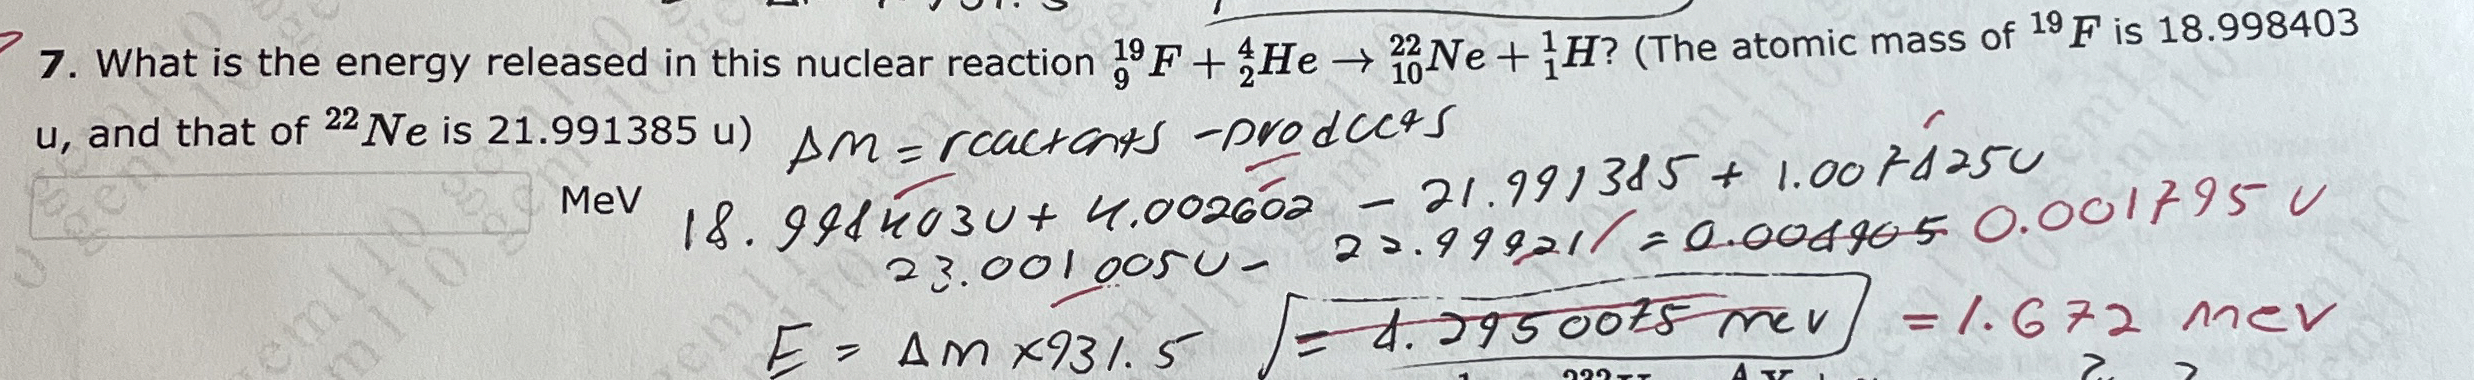 7. What is the energy released in this nuclear reaction ¹⁹₉F + ⁴₂He → ²²₁₀Ne + ¹₁H? (The atomic mass of ¹⁹F is 18.998403
u, and that of ²²Ne is 21.991385 u)
ΔM = reactants - products
MeV
18.998403U + 4.002602 - 21.991385 + 1.007825U
23.001005U - 22.99921 = 0.004905 0.001795 U
E = ΔM × 931.5 = 4.2950075 mev = 1.672 mev